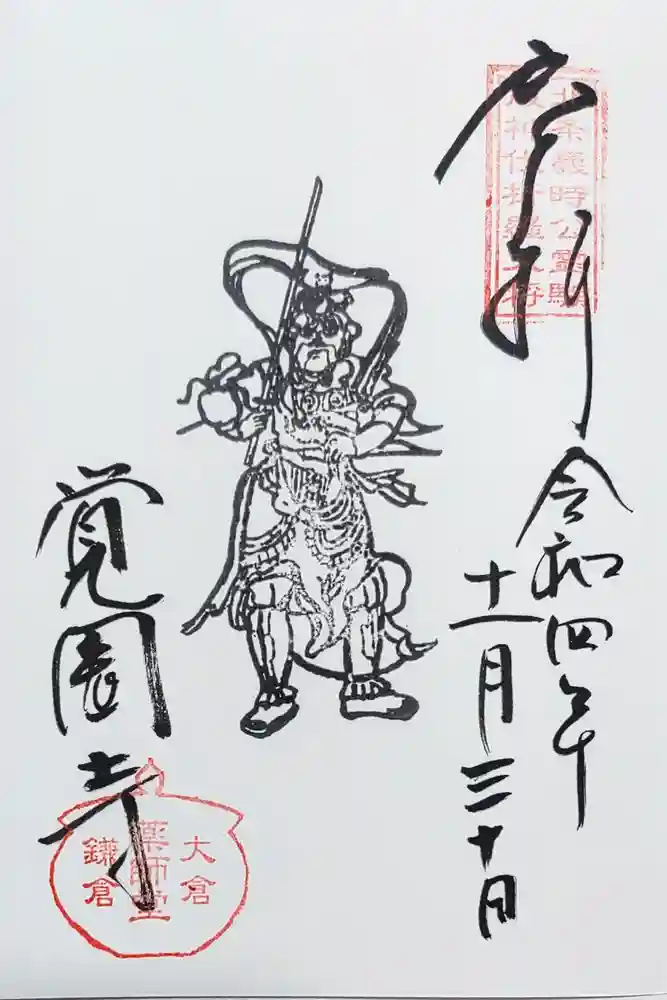 奉拝
北条義時公靈驗
戌神伐折羅大将
令和四年
十一月三十日
覚園寺
大倉
薬師堂
鎌倉